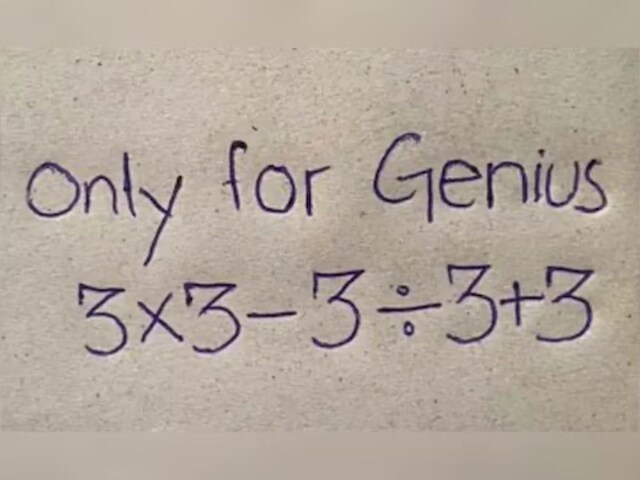 Only for Genius
3×3−3÷3+3